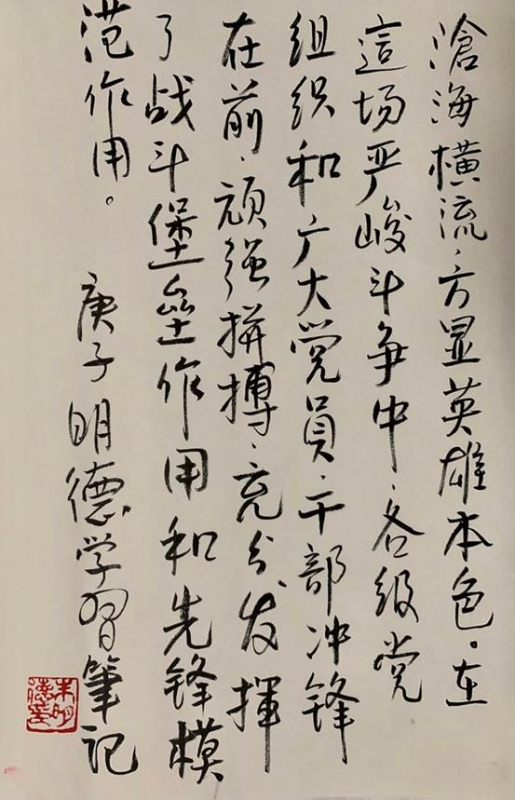 滄海橫流、方显英雄本色。在
這场严峻斗争中、各级党
组织和广大党員、干部冲锋
在前、顽强拼搏、充分发揮
了战斗堡垒作用和先锋模
范作用。
庚子明德学習筆记